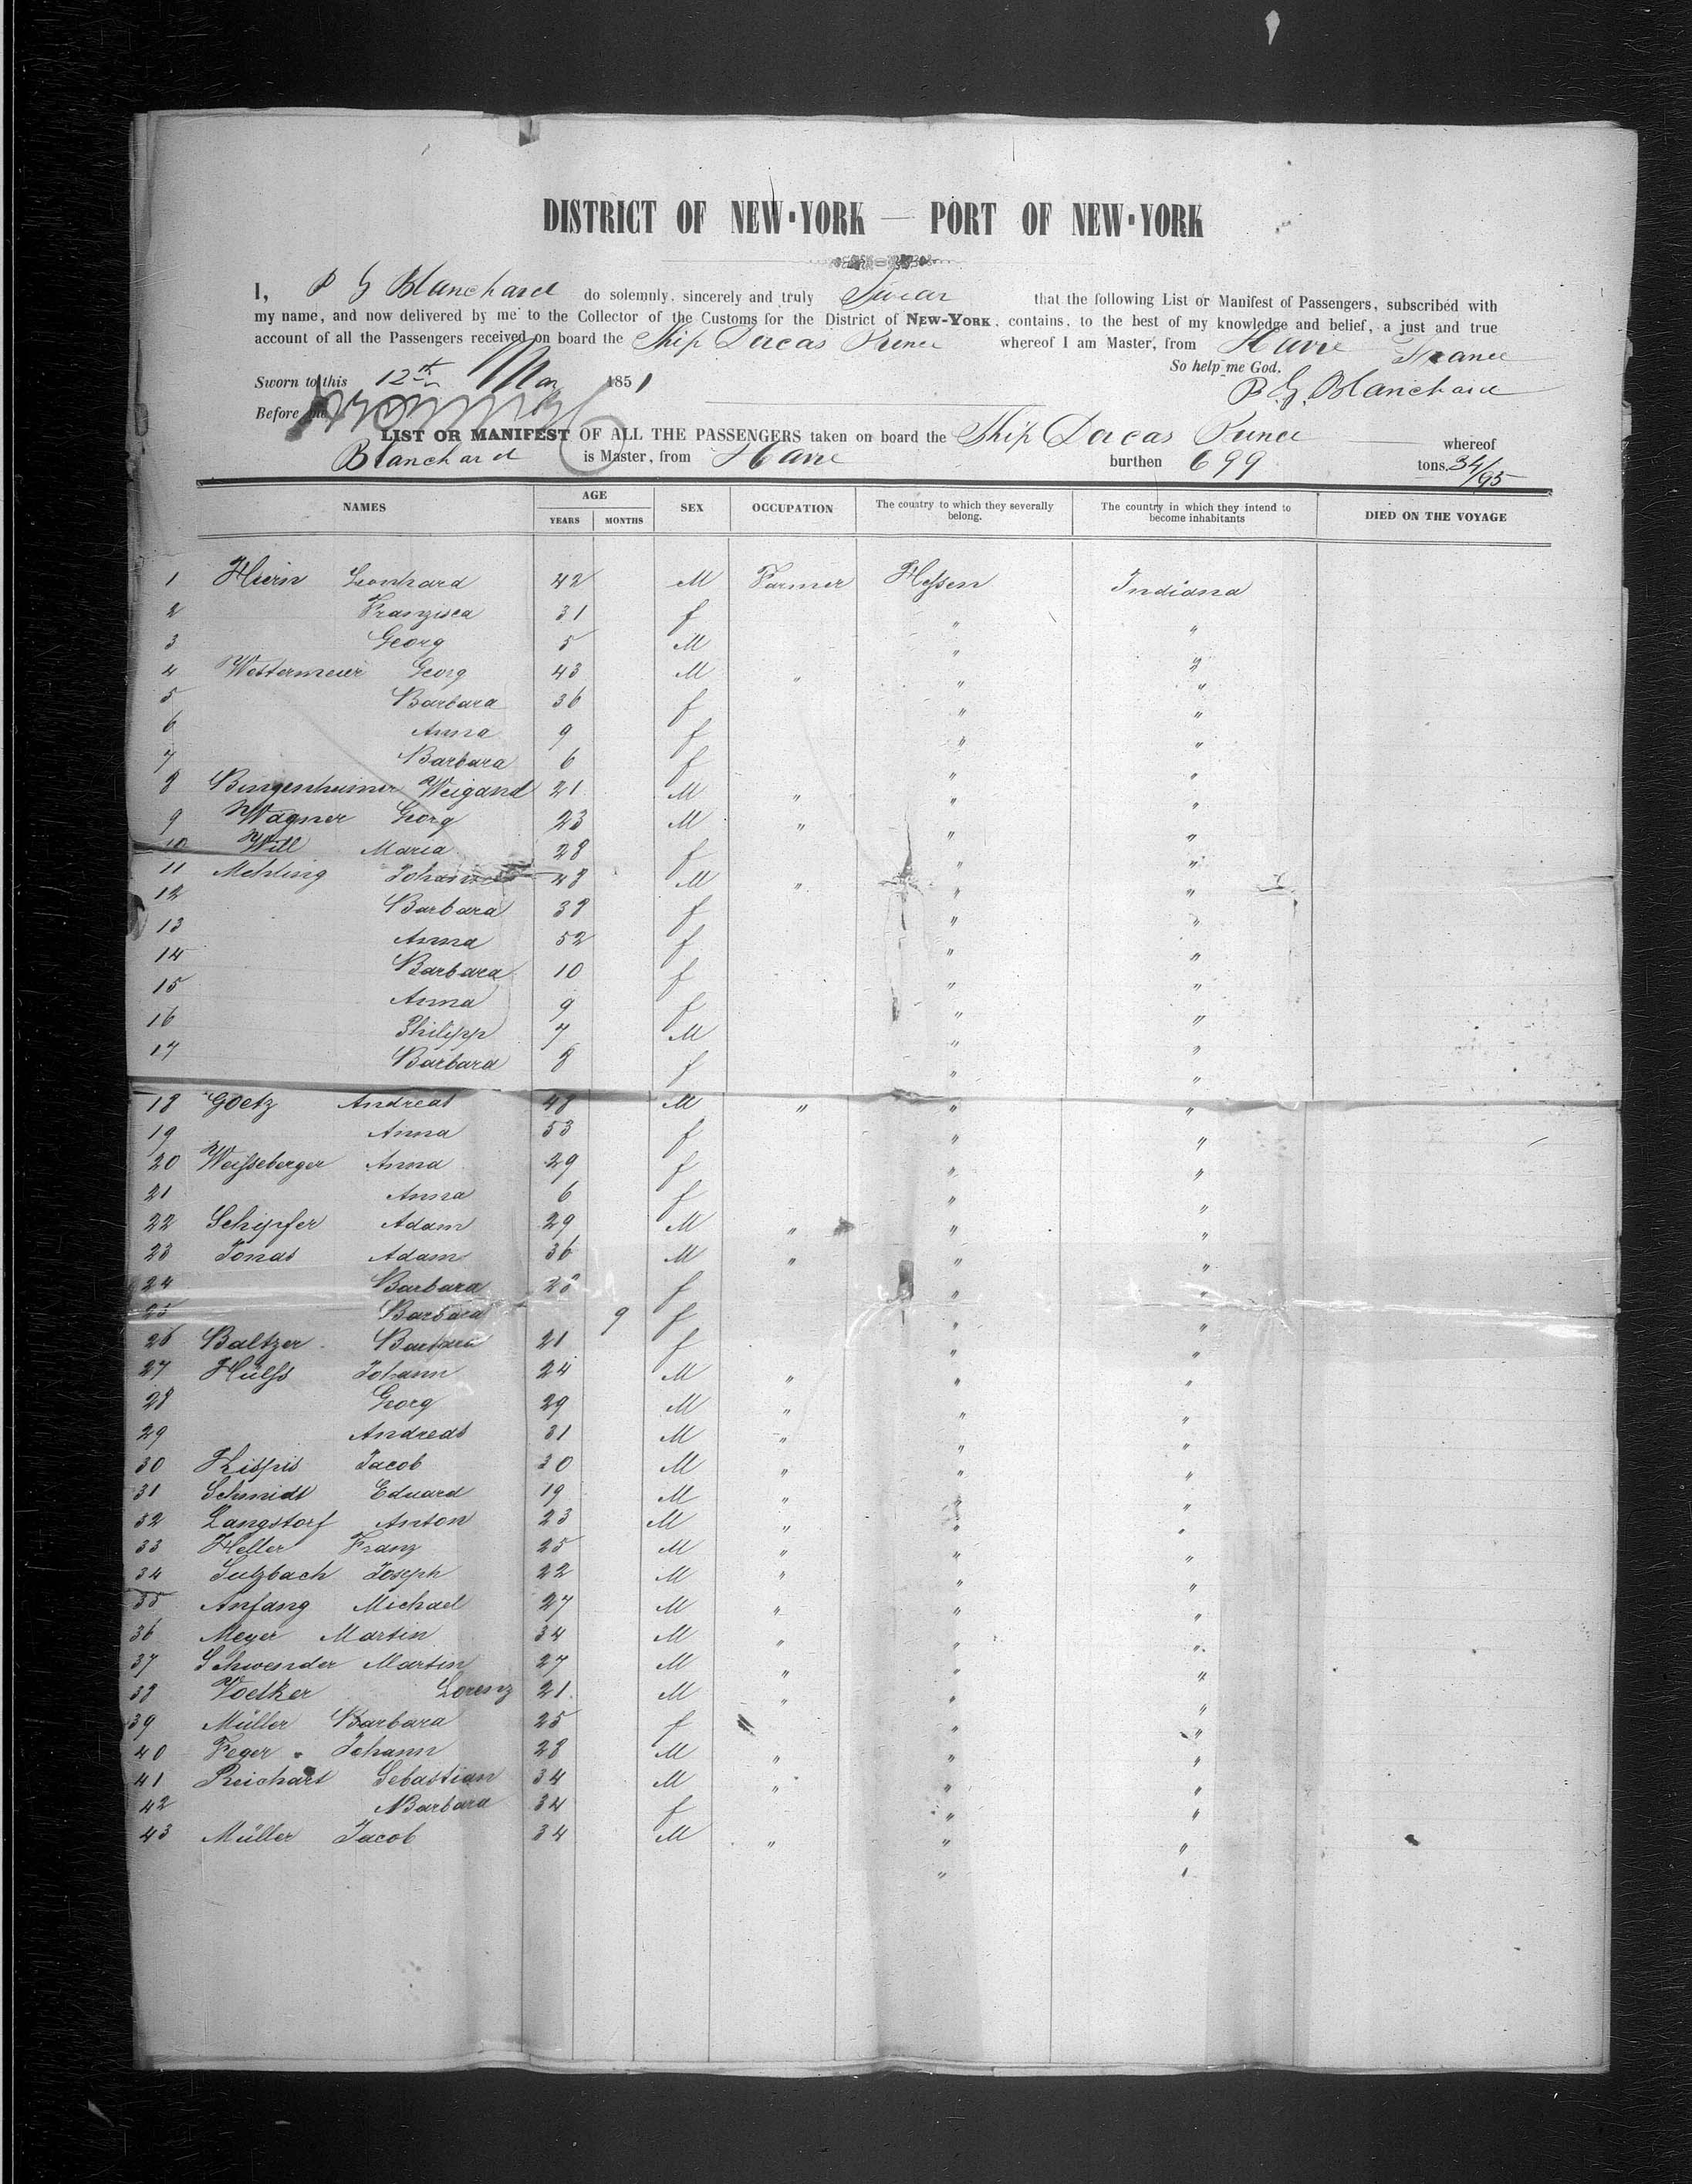 DISTRICT OF NEW-YORK — PORT OF NEW-YORK
I, P G Blanchard do solemnly, sincerely and truly Swear that the following List or Manifest of Passengers, subscribed with
my name, and now delivered by me to the Collector of the Customs for the District of NEW-YORK, contains, to the best of my knowledge and belief, a just and true
account of all the Passengers received on board the Ship Dorcas Prince whereof I am Master, from Havre France
So help me God.
Sworn to this 12th May 1851 P. G. Blanchard
Before me
LIST OR MANIFEST OF ALL THE PASSENGERS taken on board the Ship Dorcas Prince whereof
Blanchard is Master, from Havre burthen 699 tons. 34/95
NAMES AGE YEARS MONTHS SEX OCCUPATION The country to which they severally belong. The country in which they intend to become inhabitants DIED ON THE VOYAGE
1 Leonhard 42 M Farmer Hessen Indiana
2 Franzisca 31 f " "
3 Georg 5 M " "
4 Westermeier Georg 43 M " " "
5 Barbara 36 f " "
6 Anna 9 f " "
7 Barbara 6 f " "
8 Bingenheimer Weigand 21 M " " "
9 Wagner Georg 23 M " " "
10 Will Maria 28 f " "
11 Mehling Johannes 48 M " " "
12 Barbara 38 f " "
13 Anna 52 f " "
14 Barbara 10 f " "
15 Anna 9 f " "
16 Philipp 7 M " "
17 Barbara 8 f " "
18 Goetz Andreas 48 M " " "
19 Anna 53 f " "
20 Weisseberger Anna 29 f " "
21 Anna 6 f " "
22 Schipfer Adam 29 M " " "
23 Jonas Adam 36 M " " "
24 Barbara 28 f " "
25 Barbara 9 f " "
26 Baltzer Barbara 21 f " "
27 Hülss Johann 24 M " " "
28 Georg 29 M " " "
29 Andreas 31 M " " "
30 Jacob 30 M " " "
31 Schmidt Eduard 19 M " " "
32 Langstorf Anton 23 M " " "
33 Heller Franz 25 M " " "
34 Sulzbach Joseph 22 M " " "
35 Anfang Michael 27 M " " "
36 Meyer Martin 34 M " " "
37 Schwender Martin 27 M " " "
38 Voelker Lorenz 21 M " " "
39 Müller Barbara 25 f " "
40 Feger Johann 28 M " " "
41 Reichart Sebastian 34 M " " "
42 Barbara 34 f " "
43 Müller Jacob 34 M " " "